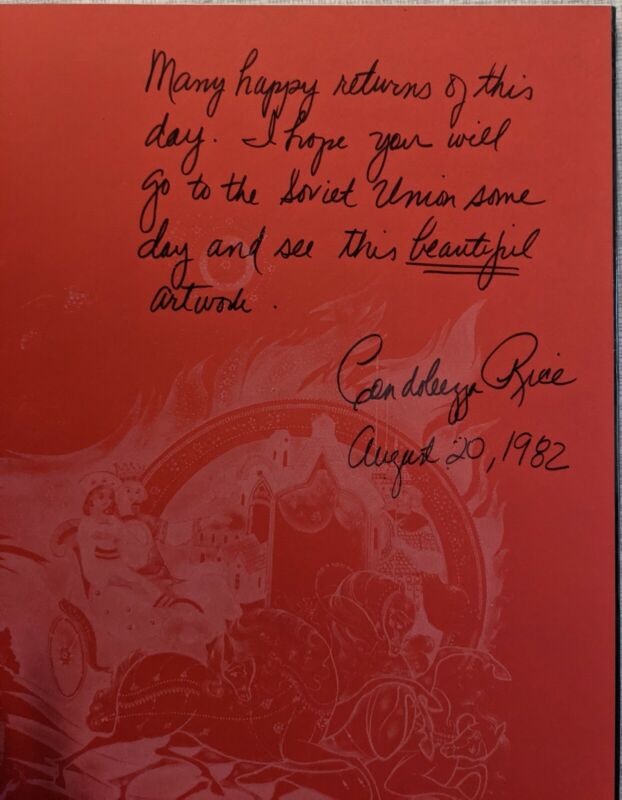 Many happy returns of this
day. I hope you will
go to the Soviet Union some
day and see this beautiful
artwork.
Condoleezza Rice
August 20, 1982